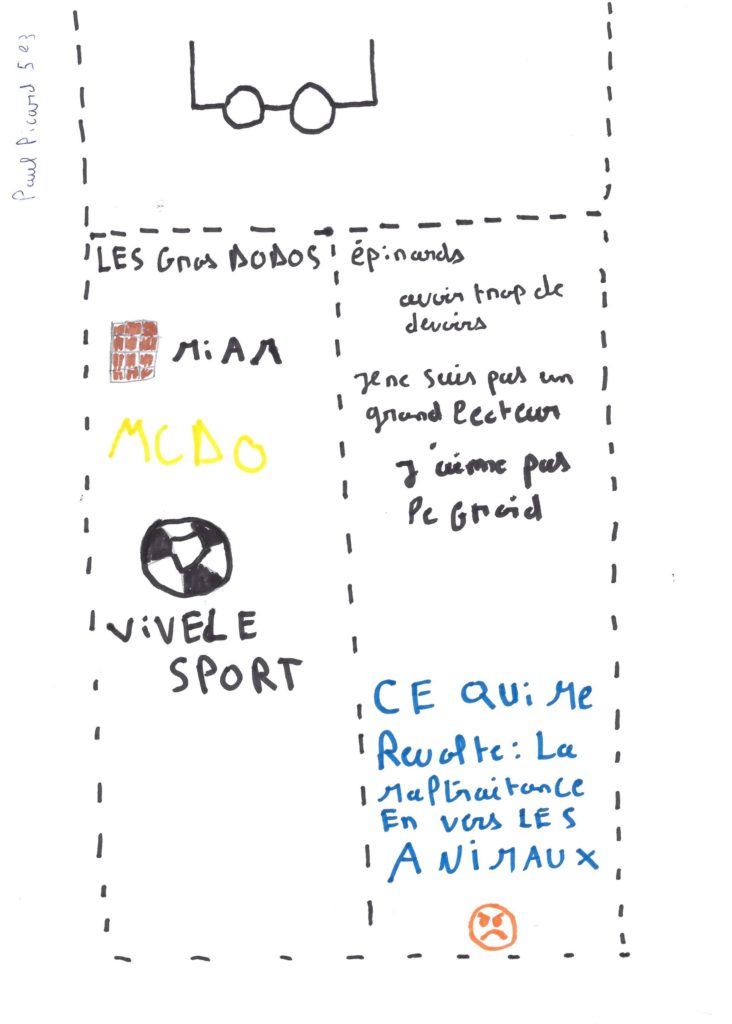 Paul Picard 5e3
LES Gros DODOS
MiAM
MCDO
ViVE LE
SPORT
épinards
avoir trop de
devoirs
Je ne suis pas un
grand lecteur
J'aime pas
le froid
CE QUi Me
Revolte : La
maltraitance
En vers LES
ANiMAUX